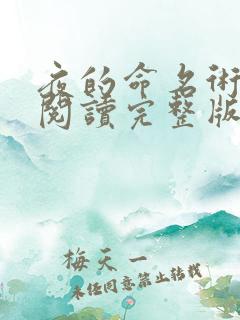 夜的命名術
閱讀完整版
梅天一
未经同意禁止转载